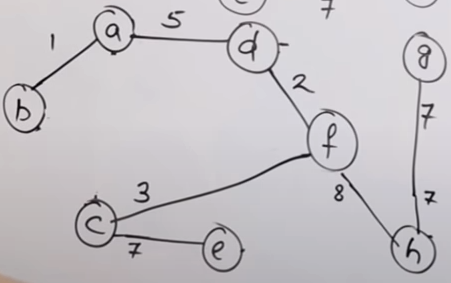 7
1
a
5
d
2
g
7
b
f
3
8
7
c
7
e
h